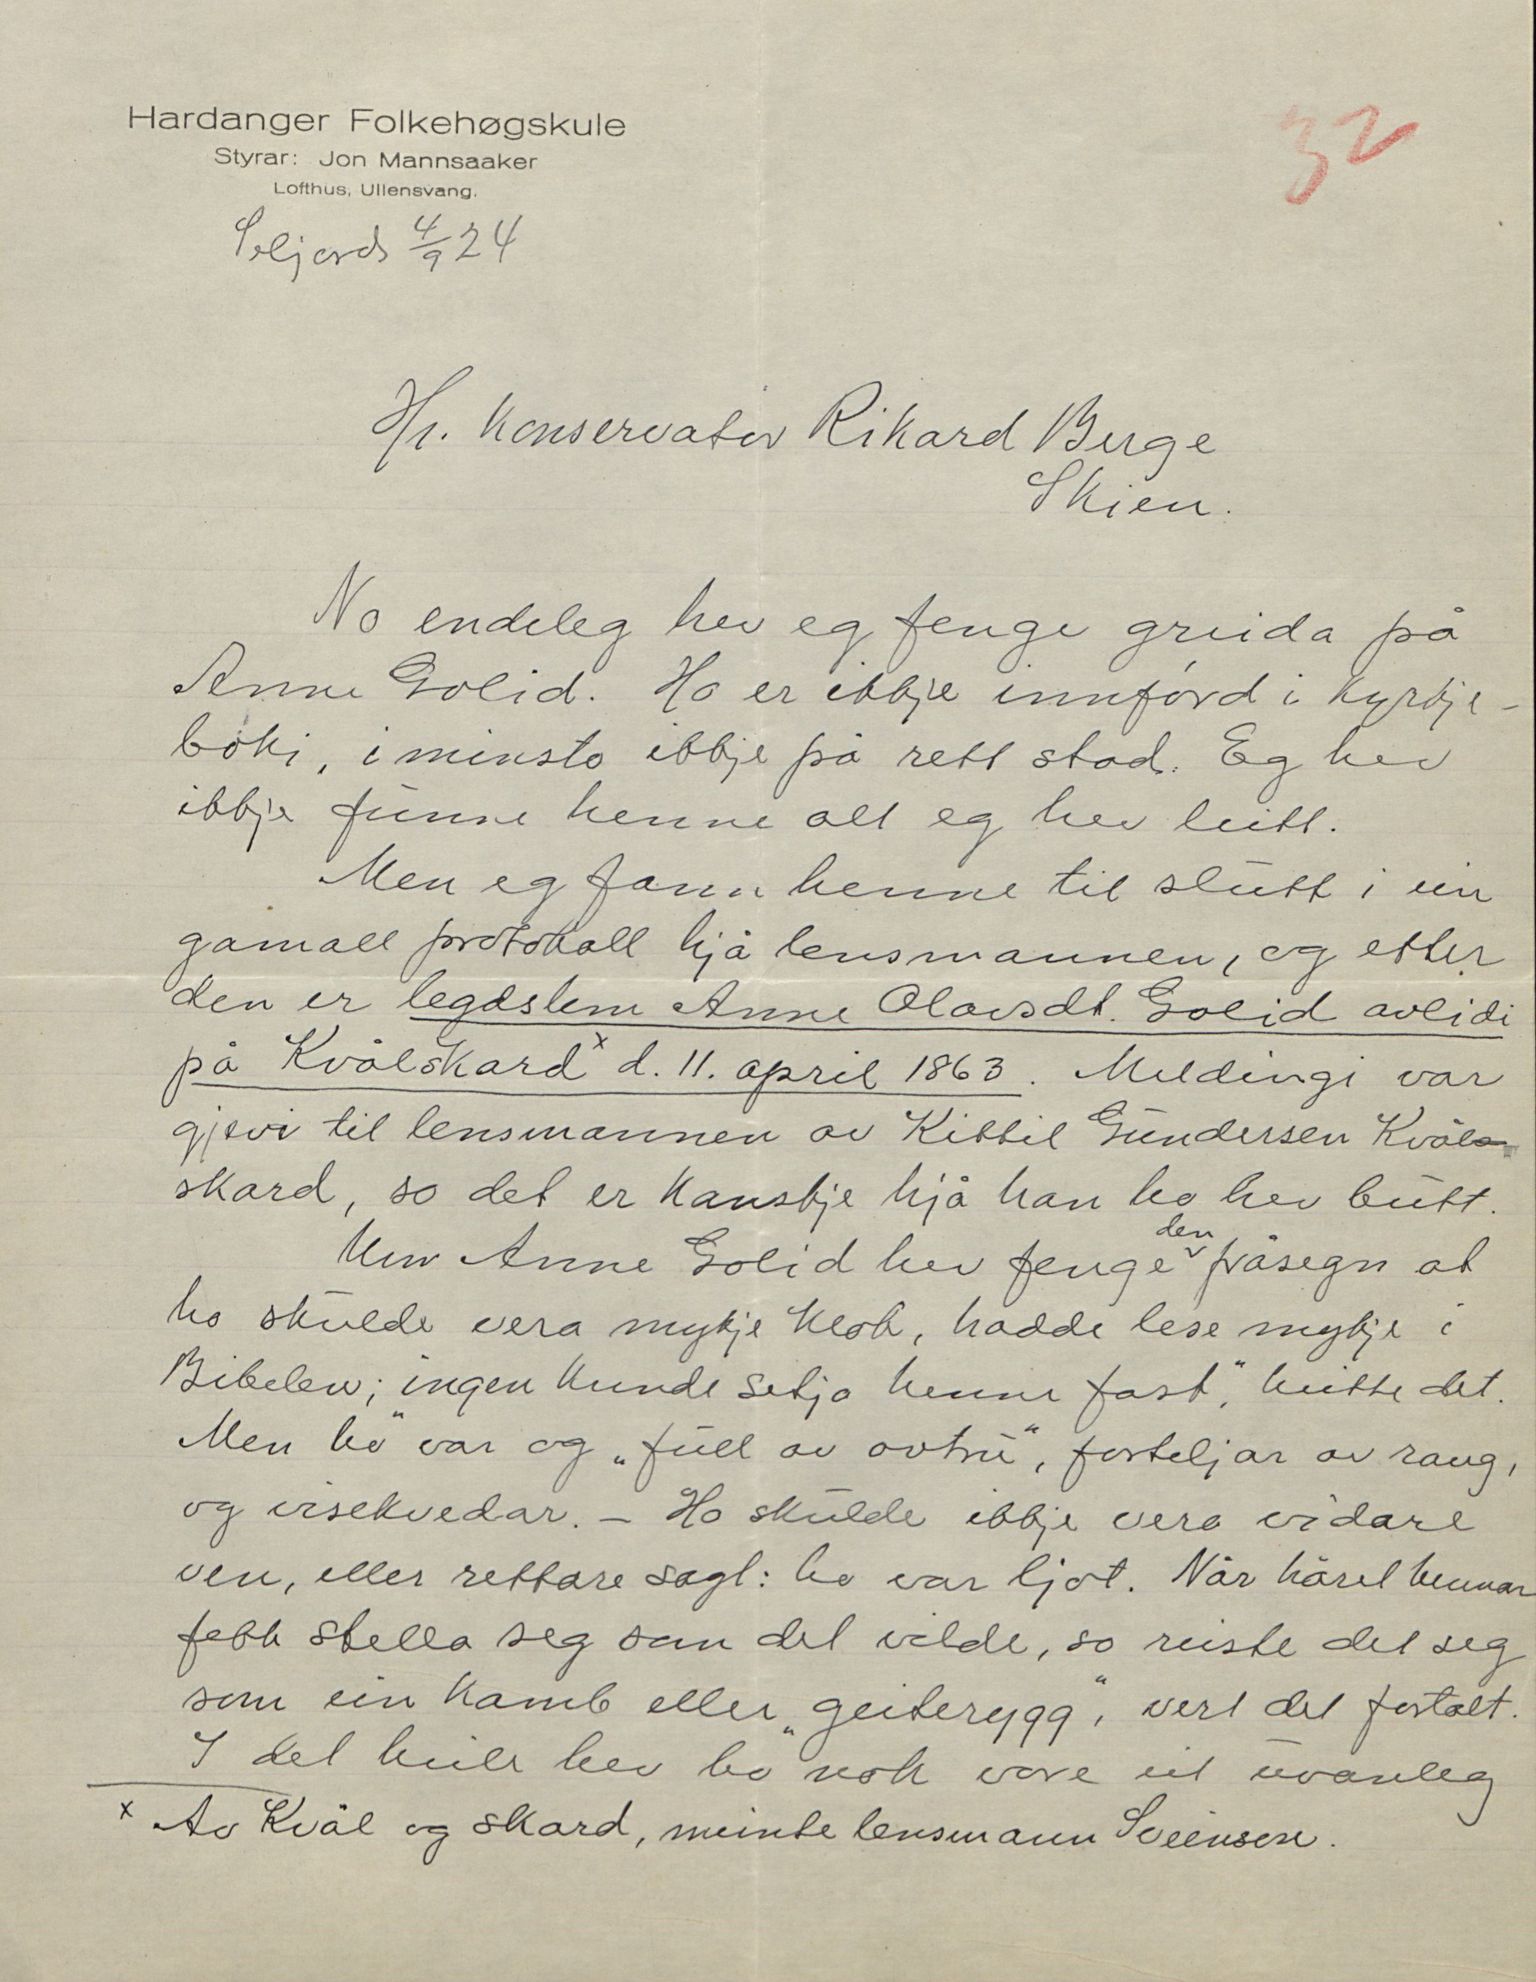 Hardanger Folkehøgskule
Styrar: Jon Mannsaaker
Lofthus, Ullensvang.
32
Seljord 4/9 24
Hr. Konservator Rikard Berge
Skien.
No endeleg hev eg fenge greida på
Anne Golid. Ho er ikkje innførd i kyrkje-
boki, i minsto ikkje på rett stad. Eg hev
ikkje funne henne alt eg hev leitt.
Men eg fann henne til slutt i ein
gamall protokoll hjå lensmannen, og etter
den er legdslem Anne Olavsdt. Golid avlidi
på Kvålskard x d. 11. april 1863. Meldingi var
gjevi til lensmannen av Kittil Gundersen Kvål-
skard, so det er kanskje hjå han ho hev butt.
Um Anne Golid hev fenge den påsegn at
ho skulde vera mykje klok, hadde lese mykje i
Bibelen; "ingen kunde setja henne fast", heitte det.
Men ho var og "full av ovtru", forteljar av rang,
og visekvedar. - Ho skulde ikkje vera vidare
ven, eller rettare sagt: ho var ljot. Når håret hennar
fekk stella seg som det vilde, so reiste det seg
som ein kamb eller "geiterygg", vert det fortalt.
I det heile hev ho nok vore eit uvanleg
x Av Kvål og skard, meinte lensmann Sveinsen.